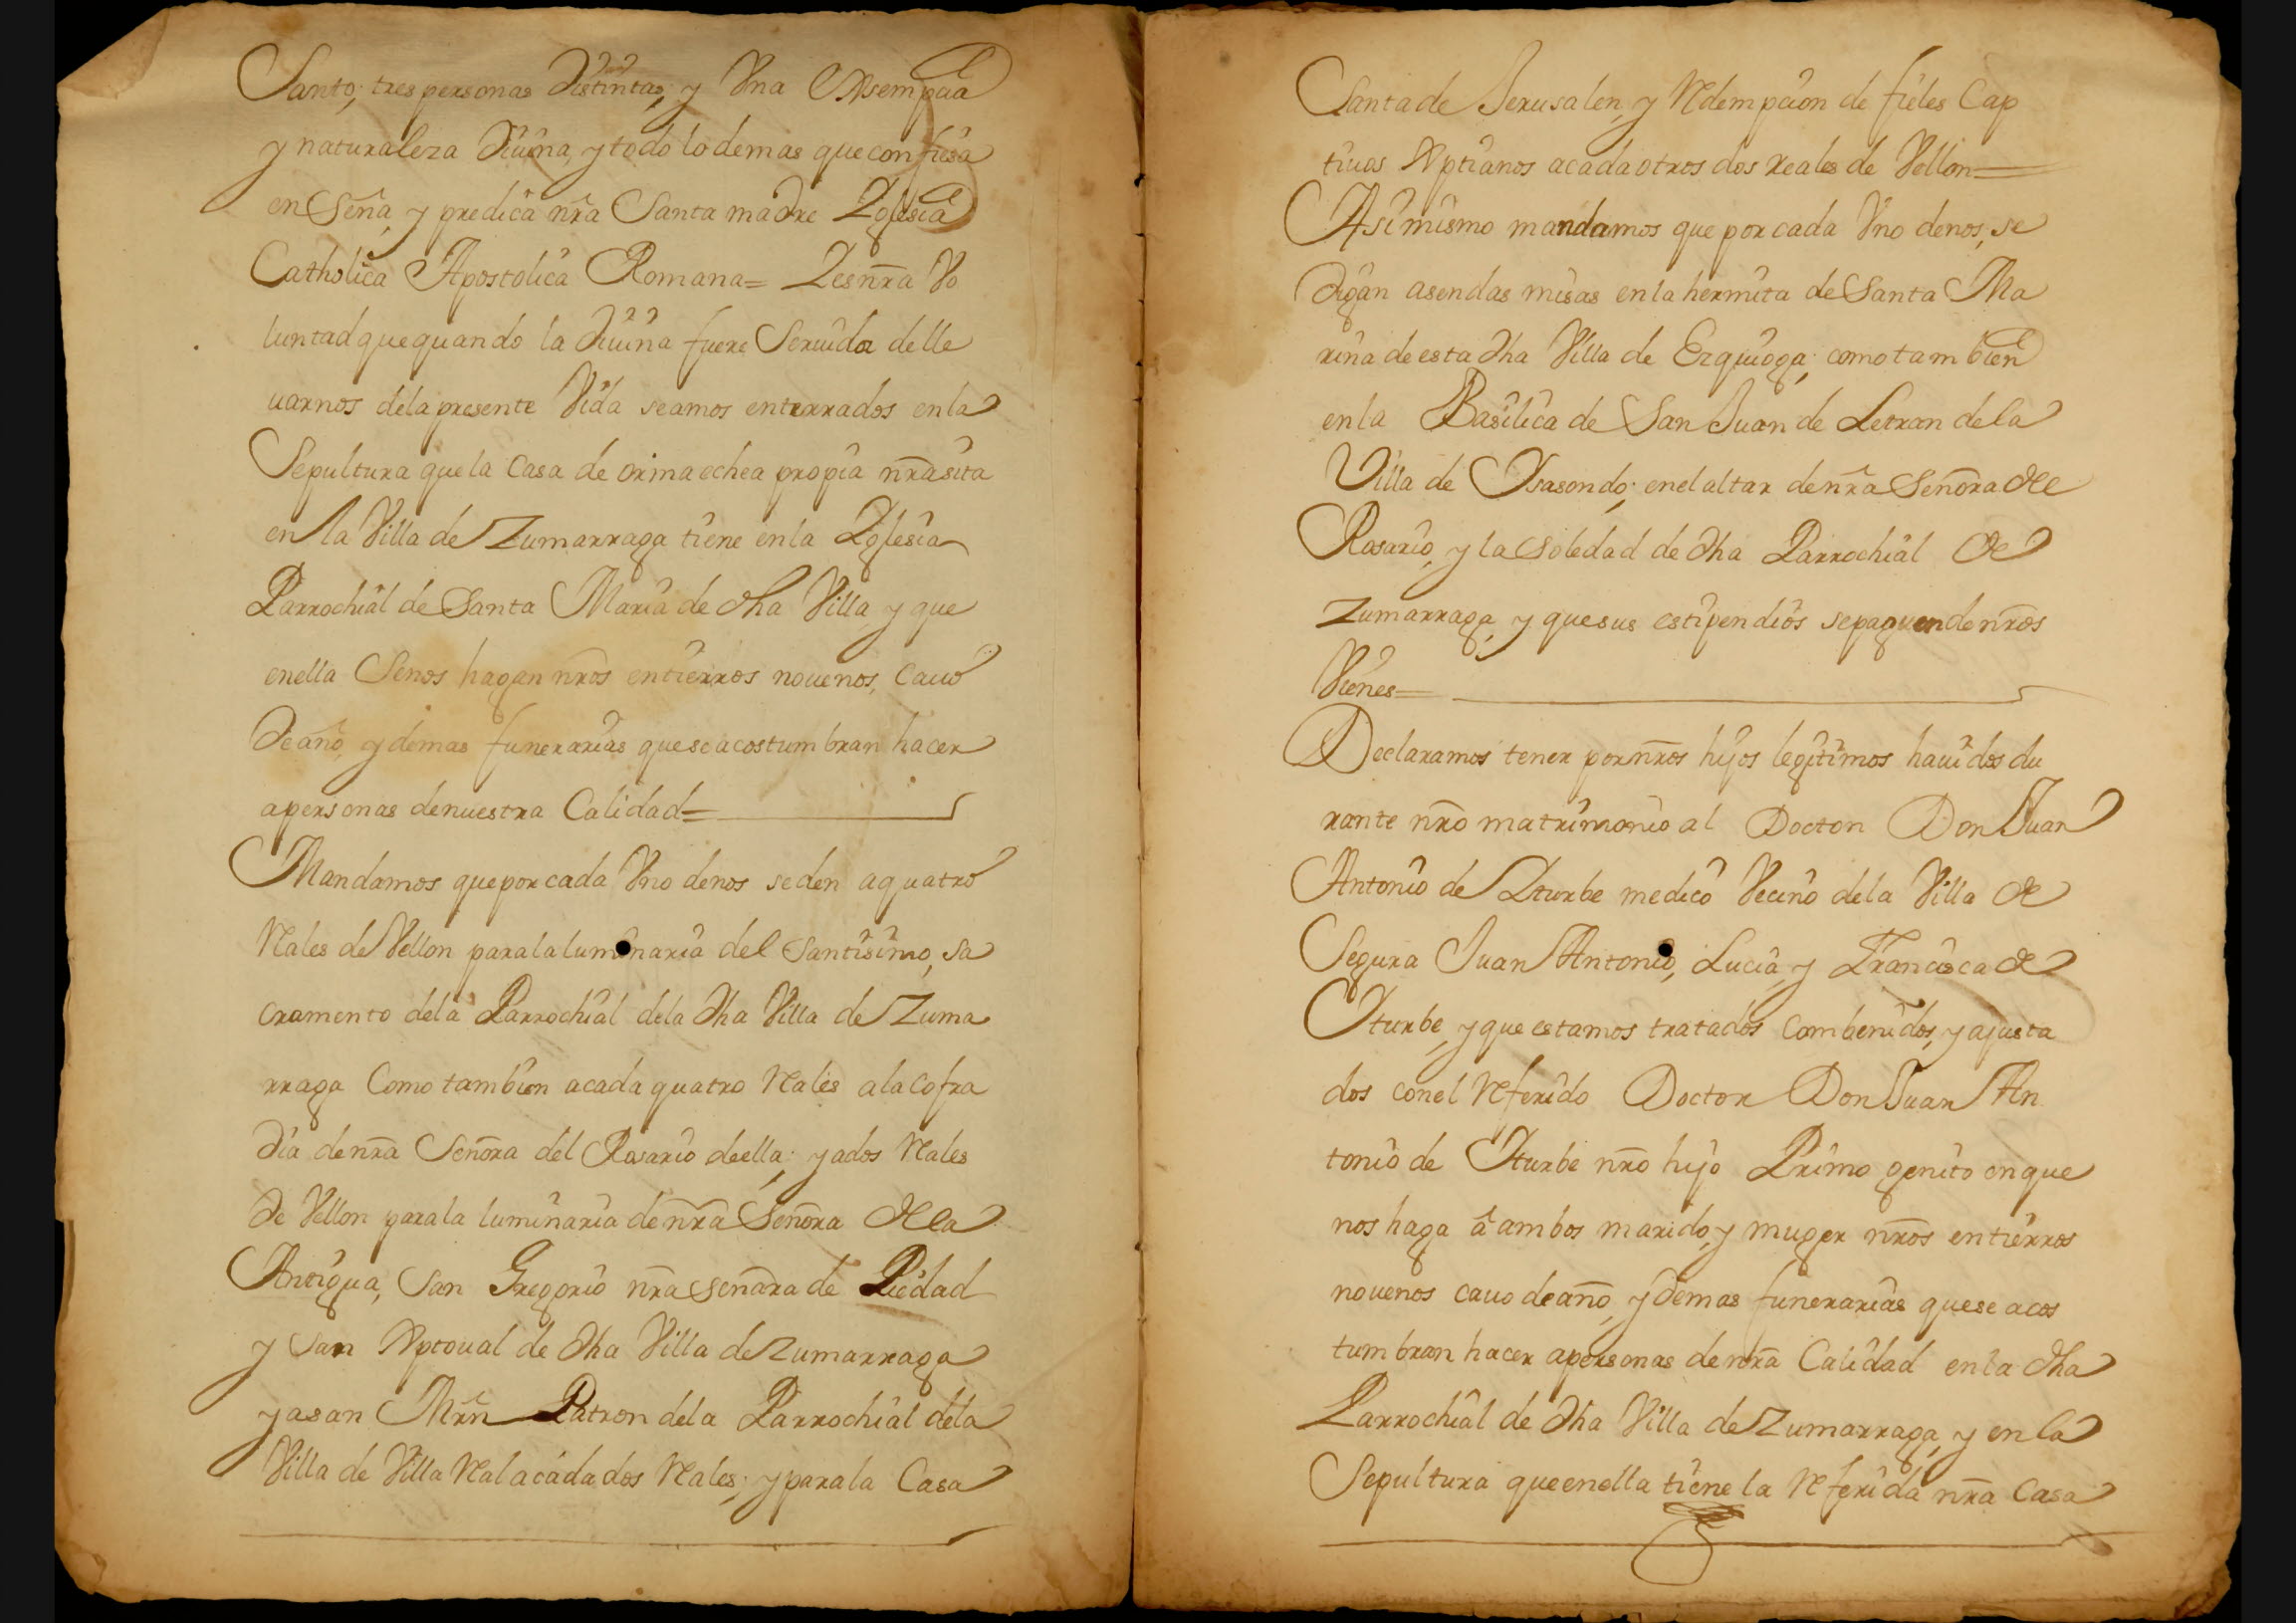 Santo; tres personas Distintas, y Vna Essempcia
y naturaleza Diuina, y todo lo demas que confiesa
enseña, y predica nrã Santa madre Yglesia
Catholica Apostolica Romana= Y es nrã Vo
luntad que quando la Diuina fuere Seruida de lle
uarnos dela presente Vida seamos enterrados en la
Sepultura que la Casa de orimaechea propia nrã sita
en la Villa de Zumarraga tiene en la Yglesia
Parrochial de Santa Maria de dha Villa, y que
en ella Senos hagan nrõs entierros nouenos, Cauo
de año, y demas funerarias que se acostumbran hacer
a personas de nuestra Calidad=
Mandamos que por cada Vno de nos se den a quatro
Rales de Vellon para la luminaria del Santisimo, sa
cramento dela Parrochial dela dha Villa de Zuma
rraga Como tambien a cada quatro Rales a la Cofra
dia de nrã Señora del Rosario de ella; y a dos Rales
de Vellon para la luminaria de nrã Señora de la
Antigua, San Gregorio nrã señora de Piedad
y San Xptoual de dha Villa de Zumarraga
y a san Mrñ Patron dela Parrochial dela
Villa de Villa Ral a cada dos Rales; y para la Casa
Santa de Jerusalen, y Redempcion de fieles Cap
tiuos Xptianos a cada otros dos reales de Vellon=
Asimismo mandamos que por cada Vno de nos, se
digan a sendas misas en la hermita de Santa Ma
rina de esta dha Villa de Ezquioga; como tambien
en la Basilica de San Juan de Letran de la
Villa de Ysasondo; en el altar de nrã Señora de
Rosario, y la Soledad de dha Parrochial de
Zumarraga, y que sus estipendios se paguen de nrõs
Vienes=
Declaramos tener por nrõs hijos legitimos hauidos du
rante nrõ matrimonio al Doctor Don Juan
Antonio de Yturbe medico Vecino dela Villa de
Segura Juan Antonio, Lucia, y Francisca de
Yturbe, y que estamos tratados Combenidos, y ajusta
dos con el Referido Doctor Don Juan An
tonio de Yturbe nrõ hijo Primo genito en que
nos haga â ambos marido, y muger nrõs entierros
nouenos cauo de año, y demas funerarias que se acos
tumbran hacer a personas de nrã Calidad en la dha
Parrochial de dha Villa de Zumarraga, y en la
Sepultura que en ella tiene la Referida nrã Casa